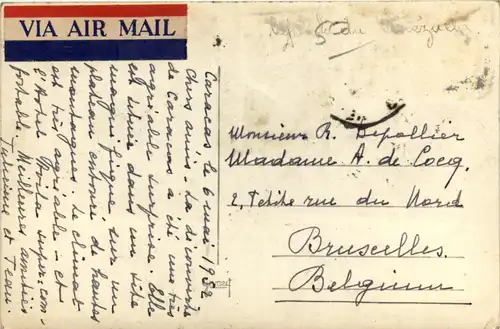 VIA AIR MAIL
Caracas le 6 mai 1952
Chers amis. La découverte
de Caracas a été une très
agréable surprise. Elle
est située dans un site
magnifique sur un
plateau entouré de hautes
montagnes. Le climat
est très agréable - et
l'hotel Super. com-
fortable. Meilleures amitiés
et Jean.
Monsieur R. Depollier
Madame A. de Cocq.
2, Petite rue du Nord
Bruxelles.
Belgium